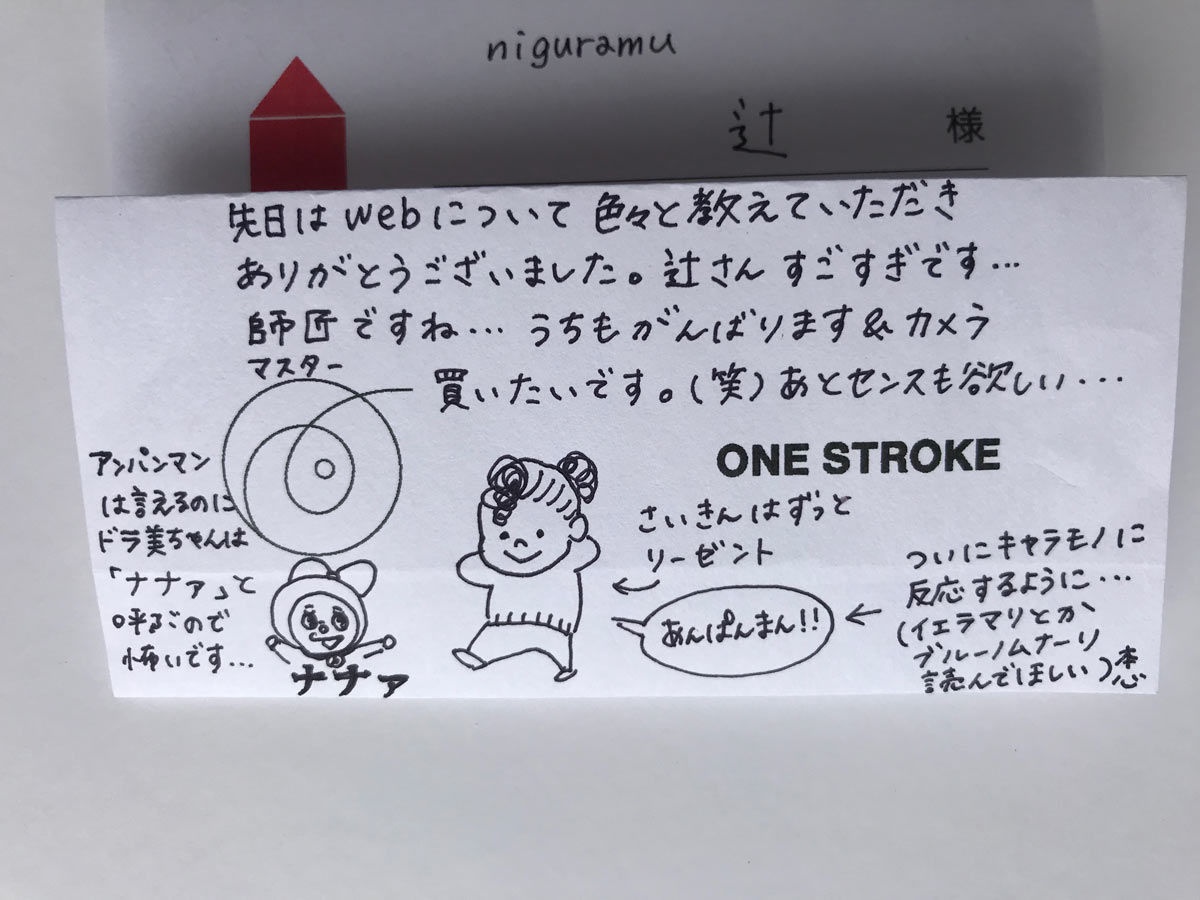 niguramu
辻 様
先日はwebについて色々と教えていただき
ありがとうございました。辻さんすごすぎです...
師匠ですね...うちもがんばります&カメラ
マスター
買いたいです。(笑)あとセンスも欲しい...
ONE STROKE
アンパンマン
は言えるのに
ドラ美ちゃんは
「ナナァ」と
呼ぶので
怖いです...
ナナァ
さいきんはずっと
リーゼント
あんぱんまん!!
ついにキャラモノに
反応するように...
(イエラマリとか
ブルーノムナーリ
読んでほしい)